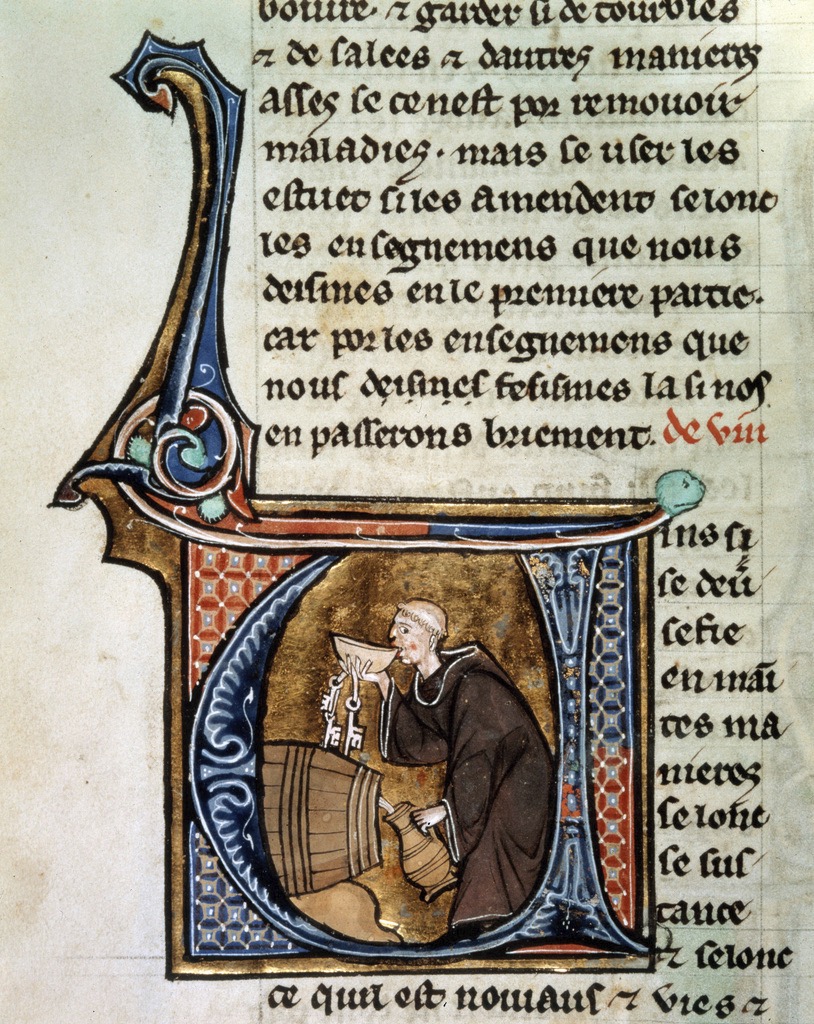 boiure. ⁊ garder si de tourbles
⁊ de salees ⁊ dautres manieres
asses se ce nest por remouoir
maladies. mais se user les
estuet si les amendent selonc
les ensegnemens que nous
deismes en le premiere partie.
car por les ensegnemens que
nous deismes fesismes la si nos
en passerons briement. de vin
ins si
se deu
sefie
en mai
tes ma
nieres
selonc
se sus
tance
⁊ selonc
ce quil est nouiaus ⁊ vies ⁊